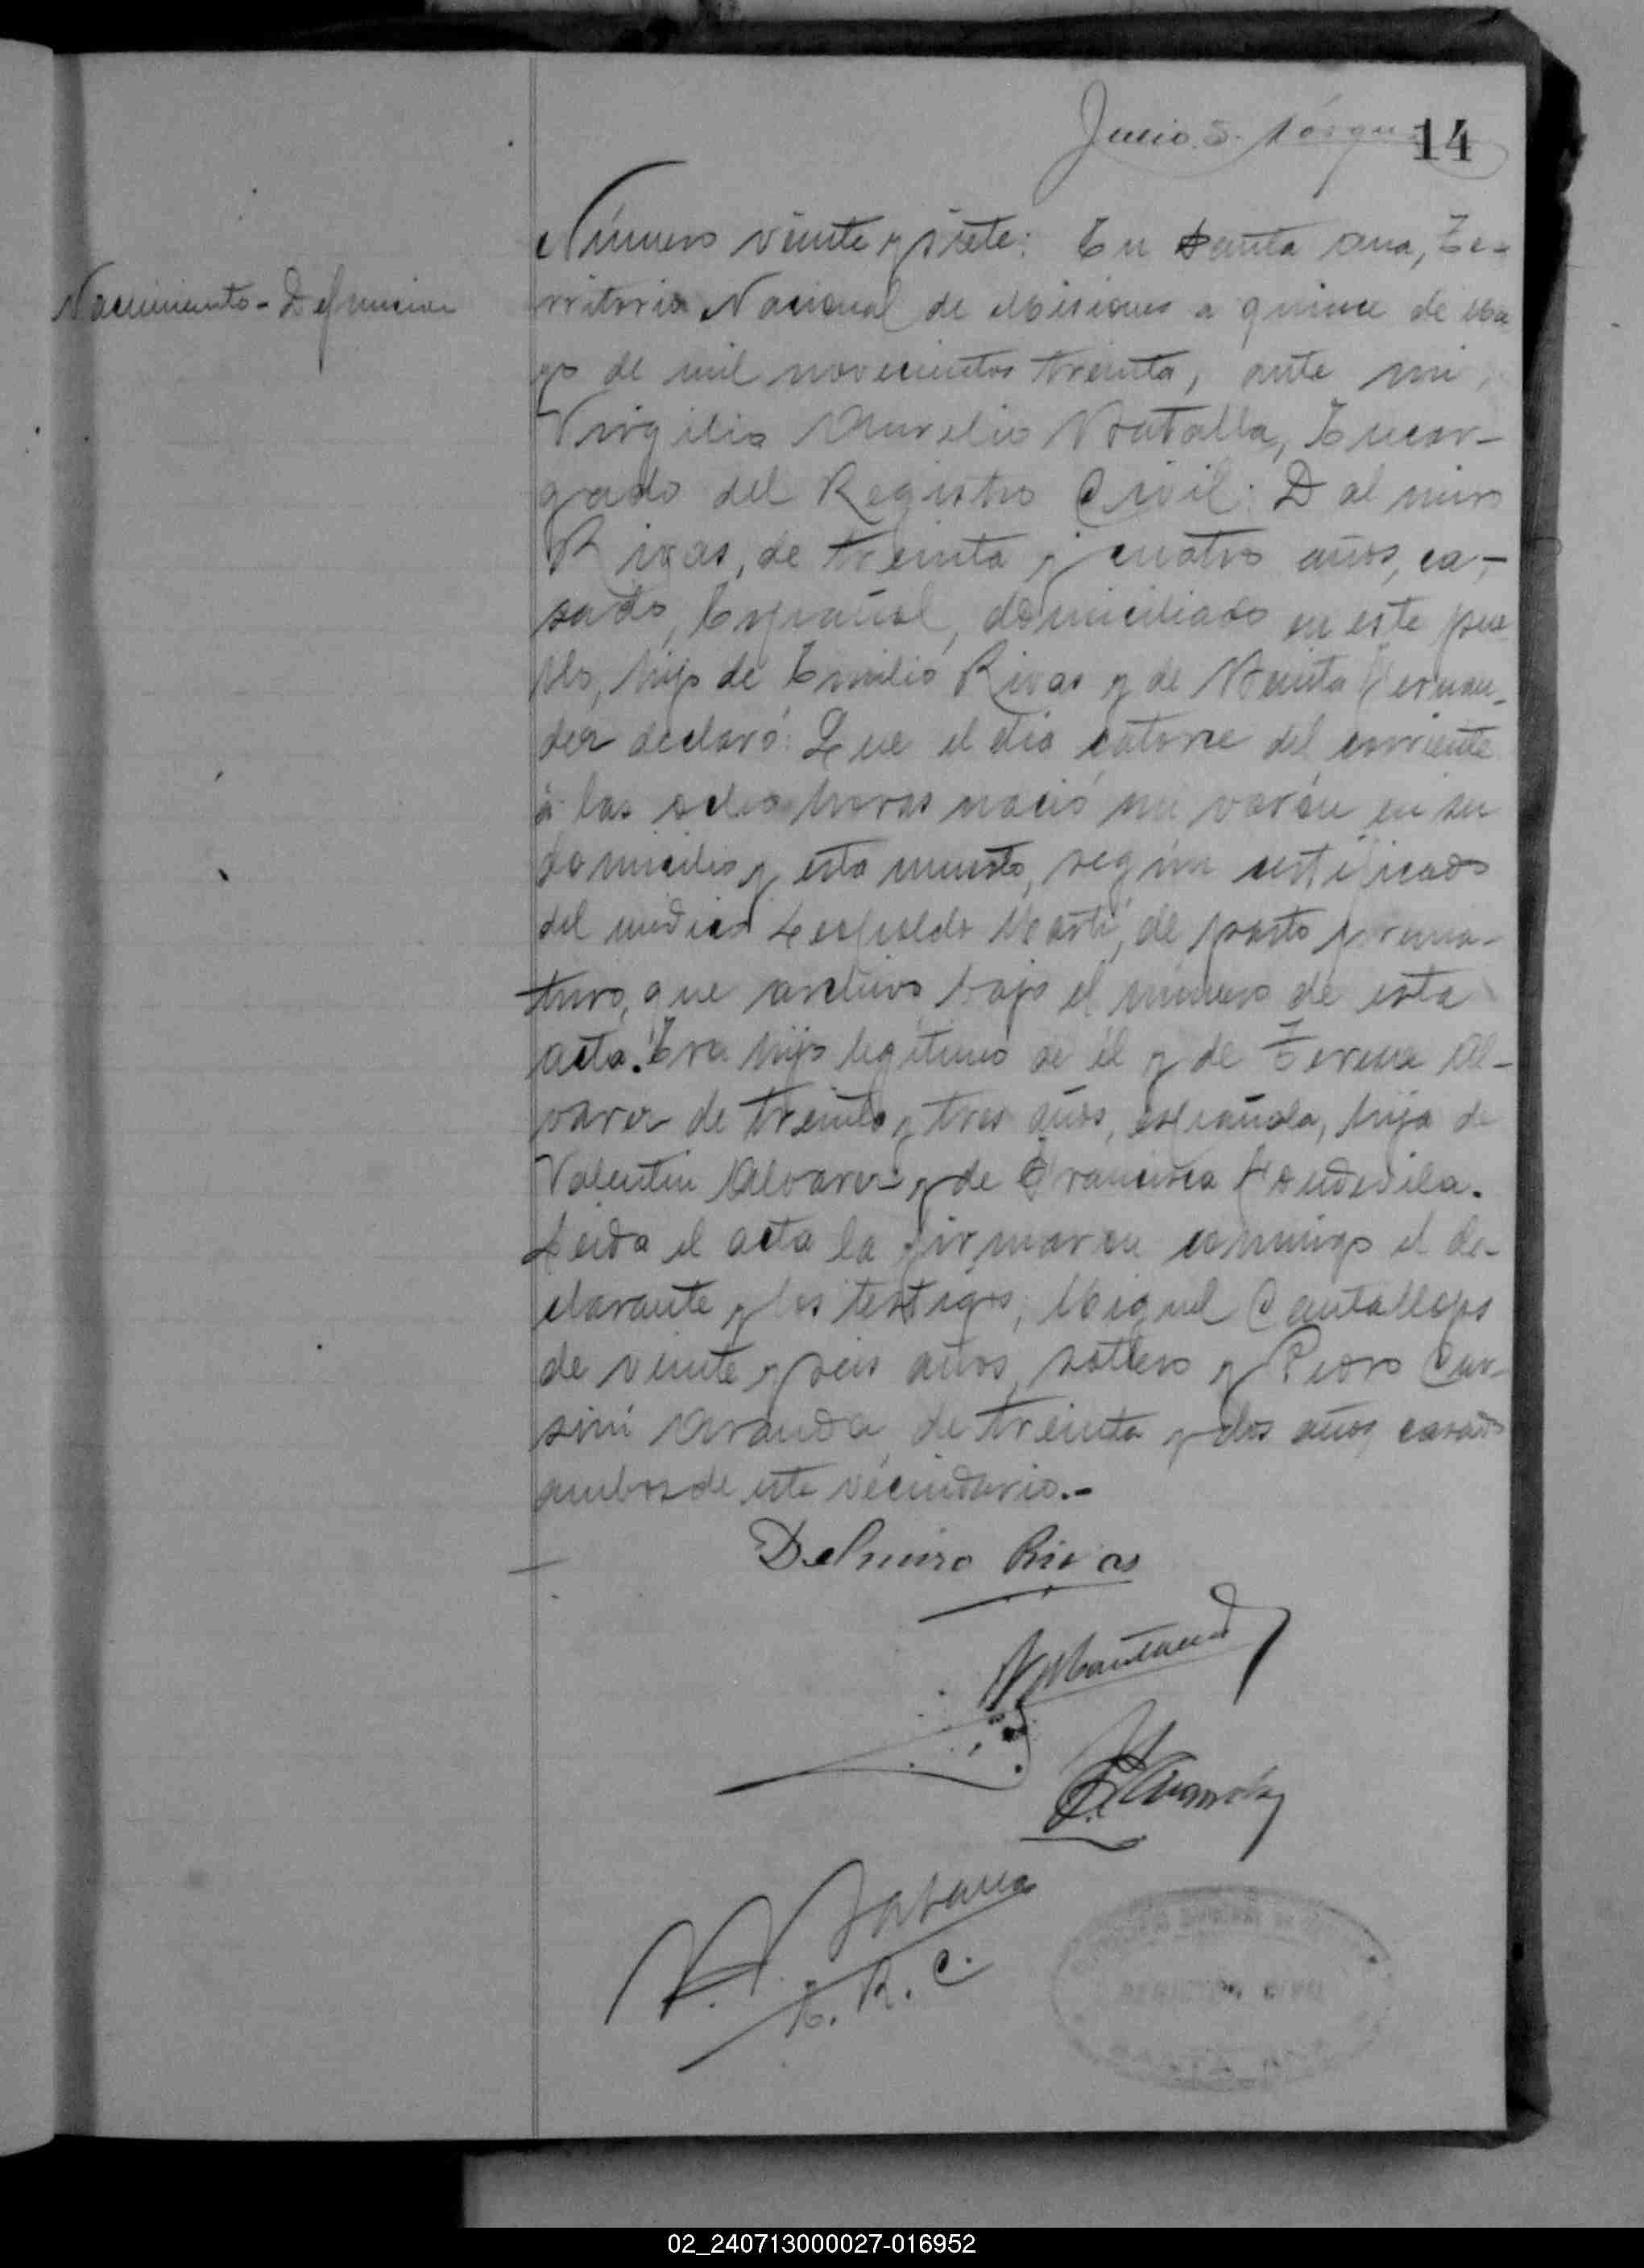 Junio S. Vásquez
14
Nacimiento - Defuncion
Número veinte y siete: En Santa Ana, Te-
rritorio Nacional de Misiones a quince de Ma
yo de mil novecientos treinta, ante mi,
Virgilio Aurelio Encar-
gado del Registro Civil: Dalmiro
Rivas, de treinta y cuatro años, ca-
sado, Español, domiciliado en este pue
blo, hijo de Emilio Rivas y de Benita Fernan-
dez declaró: Que el dia catorce del corriente
á las ocho horas nació un varón en su
domicilio y esta muerto, según certificado
del médico Leopoldo Martí, de parto prema-
turo, que archivo bajo el número de esta
acta. Era hijo legitimo de él y de Teresa Al-
varez de treinta y tres años, española, hija de
Valentin Alvarez y de Francisca Fondevila.
Leida el acta la firmaron conmigo el de-
clarante y los testigos, Miguel Cantallops
de veinte y seis años, soltero y Pedro Cur-
sini Aranda de treinta y dos años casado
ambos de este vecindario.-
Delmiro Rivas
E. R. C.
REGISTRO CIVIL
02_240713000027-016952